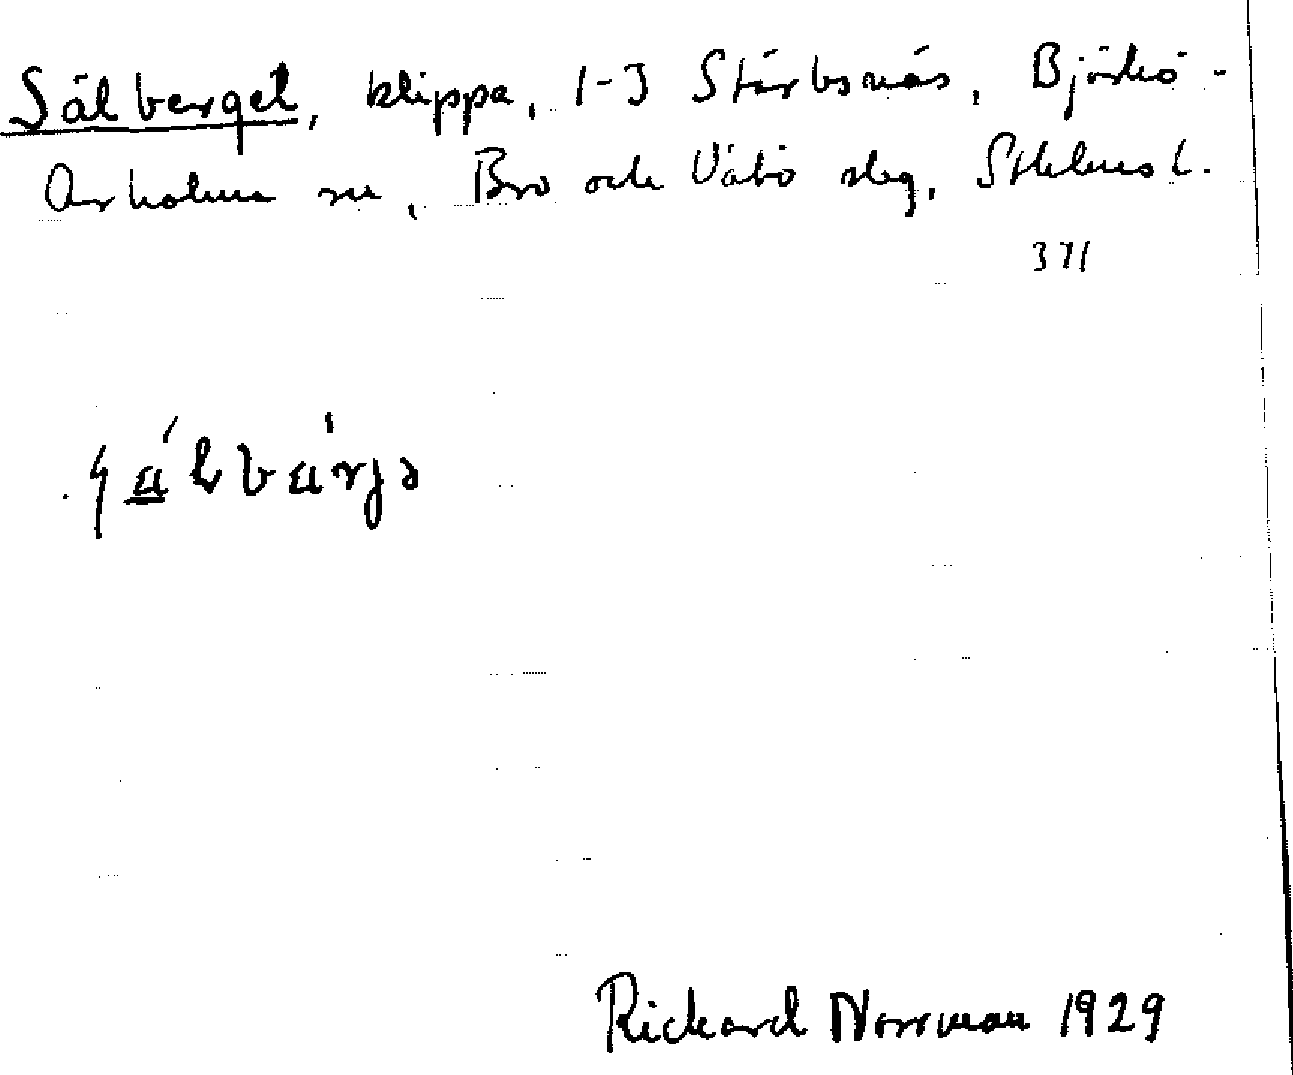 Sälberget, klippa, 1-3 Stärbsnäs, Björkö-
Arholma sn, Bro och Vätö slg, Sthlms l.
371
Rickard Norrman 1929